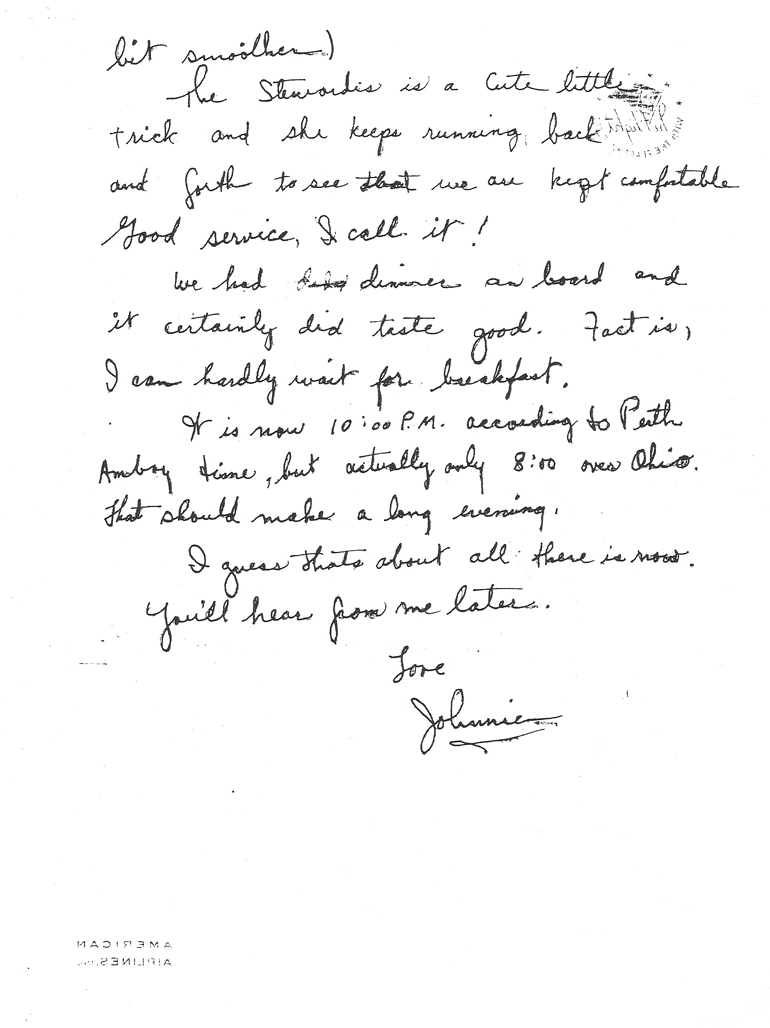 bit smoother)
The Stewardis is a cute little
trick and she keeps running back
and forth to see that we are kept comfortable
Good service, I call it!
We had dinner on board and
it certainly did taste good. Fact is,
I can hardly wait for breakfast.
It is now 10:00 P.M. according to Perth
Amboy time, but actually only 8:00 over Ohio.
That should make a long evening.
I guess thats about all there is now.
You'll hear from me later.
Love
Johnnie
AMERICAN
AIRLINES, INC.